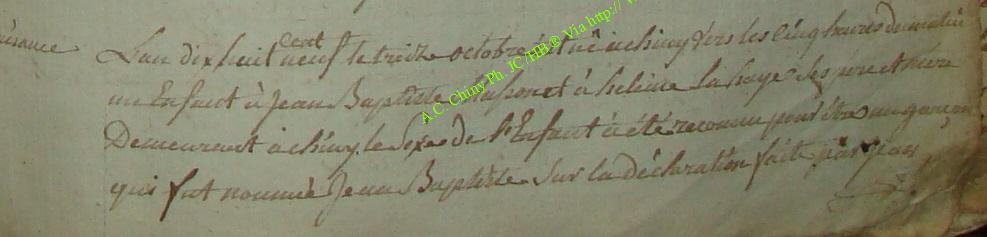 naissance
L'an dix huit cent neuf le treize octobre est né à chiny vers les cinq heures du matin
un Enfant à Jean Baptiste et à helene Lahaye ses pere et mere
Demeurant à chiny. le sexe de l'Enfant à été reconnu pour être un garçon
qui fut nommé Jean Baptiste sur la déclaration faite par jean
A.C. Chiny Ph. JC/HB® Via http://